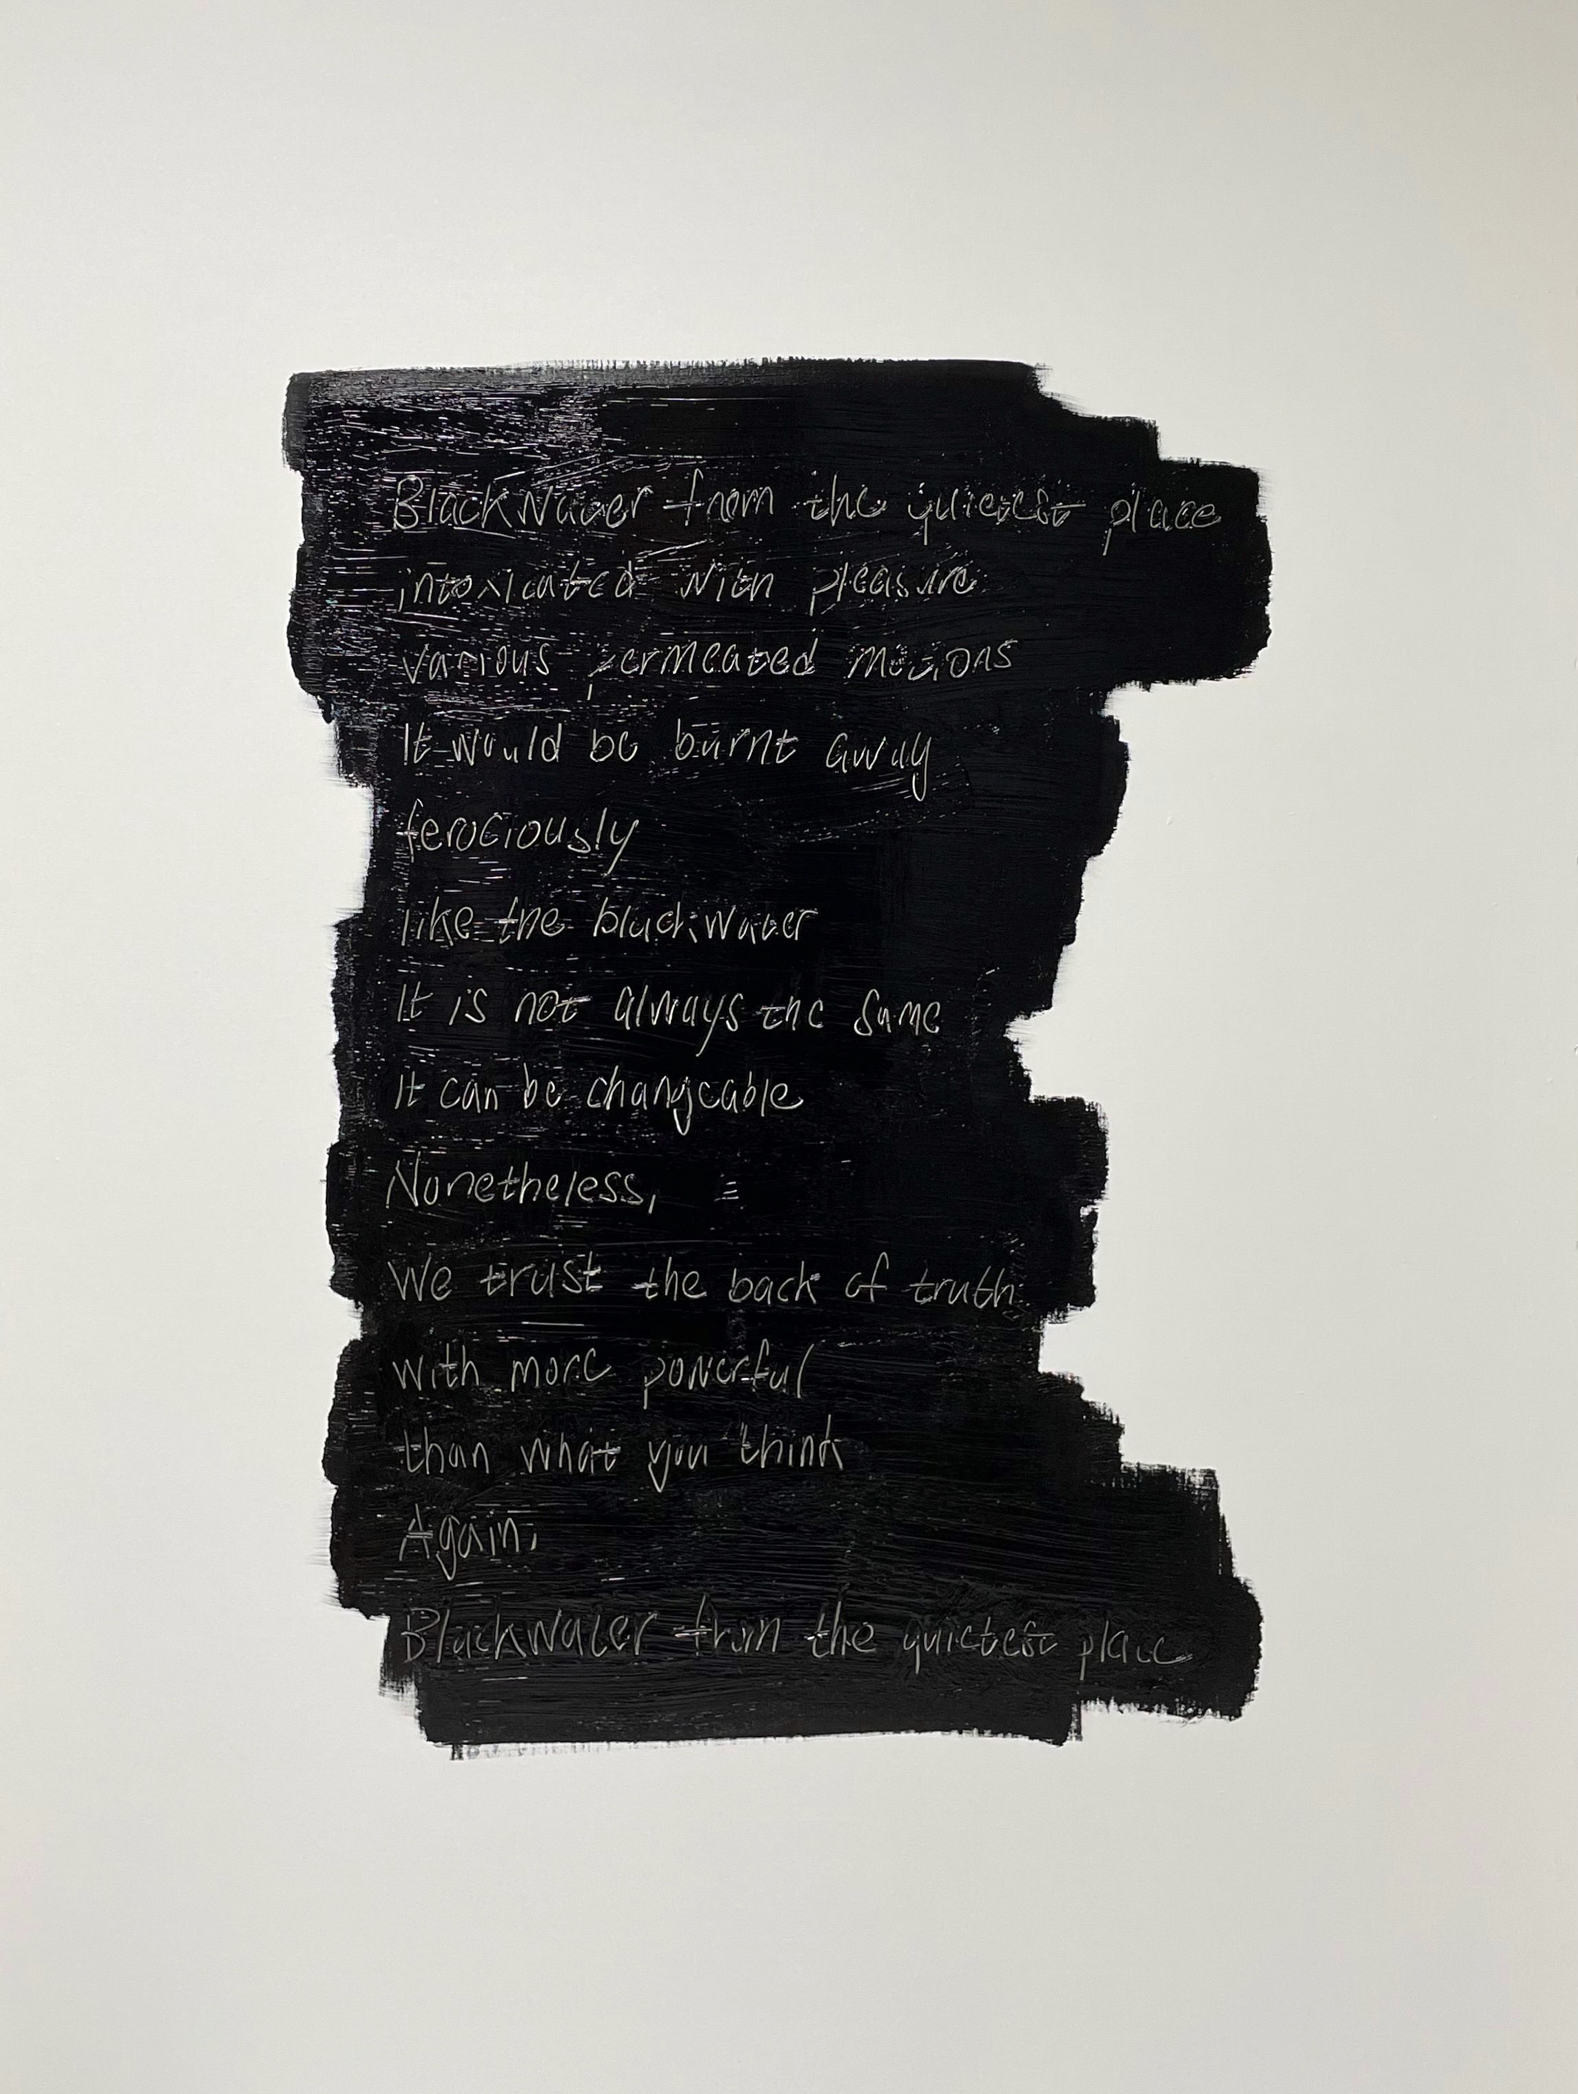 Blackwater from the quietest place
intoxicated with pleasure
various permeated motions
It would be burnt away
ferociously
like the blackwater
It is not always the same
It can be changeable
Nonetheless,
We trust the back of truth
with more powerful
than what you think
Again,
Blackwater from the quietest place